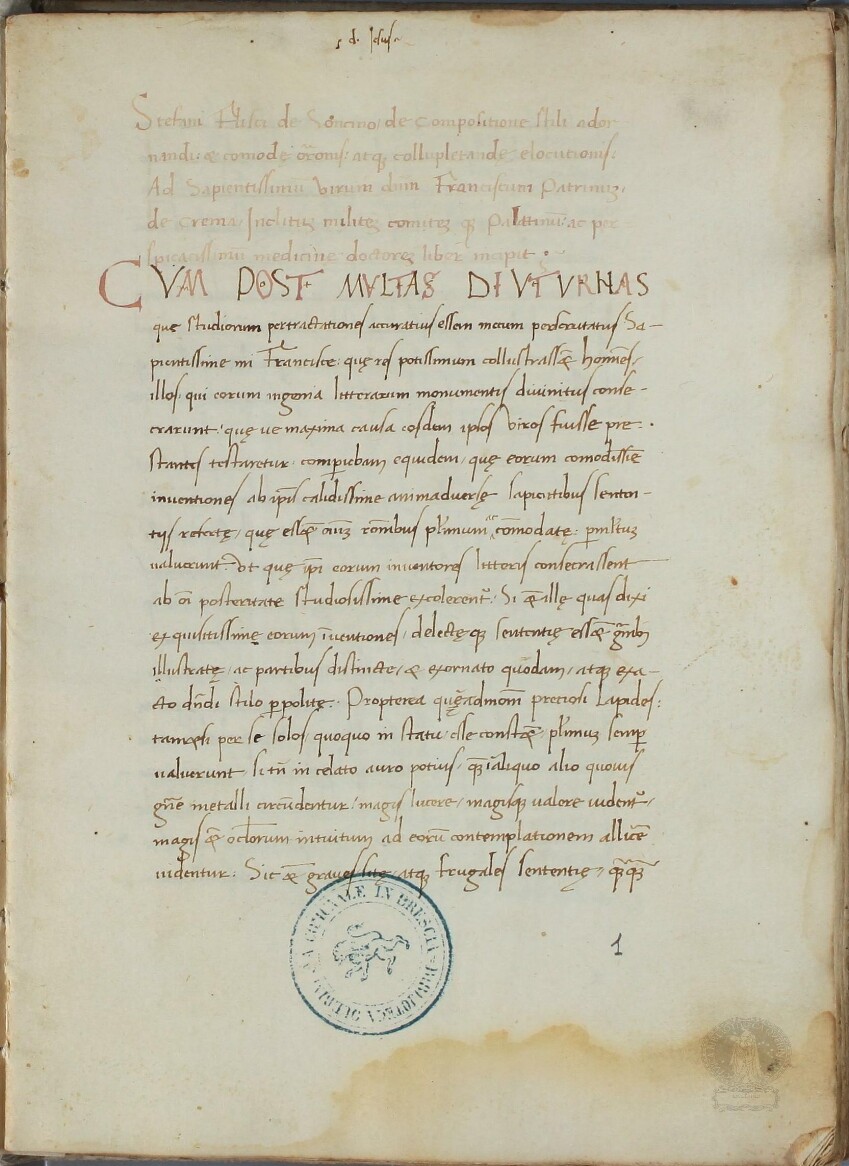 Stefani Flisci de Soncino, de compositione stili ador
nandi: & comode or̄onis: atq; collupletande elocutionis:
Ad Sapientissimū Virum dn̄m Franciscum Patriniꝫ,
de Crema, Inclituꝫ militeꝫ comiteꝫ qꝫ Palatinū: ac per
spicacissimū medicine doctoreꝫ liber incipit:
CVM POST MVLTAS DIVTVRNAS
que studiorum pertractationes accuratius essem mecum perscrutatus Sa-
pientissime mi Francisce: quę res potissimum collustrass& hoīnes,
illos, qui eorum ingenia litterarum monumentis divinitus conse-
crarunt: quę ve maxima causa eosdem ipsos viros fuisse pre
stantes testaretur. comperiebam equidem, quę eorum comodissīe
inventiones ab ip̄is calidissime animadversę sapientibus senten-
tijs refertę, quę ess& ac cōmodatę:
valuerunt. Ut quę ip̄i eorum inventores litteris consecrassent
ab oī posteritate studiosissime excolerent᷑. Si illę quas dixi
exquisitissimę eorum īventiones, delectęqꝫ sententię
illustratę, ac partibus distincte, & exornato quodam, atqꝫ exa-
cto dn̄di stilo p̱polite. Propterea preciosi Lapides:
tametsi per se solos quoquo in statu esse const& semp̱
valuerunt si tn̄ in celato auro potius, qꝫ ī aliquo alio quovis
gn̄e metalli circūdentur, magis lucere, magisqꝫ valore vident᷑,
magis intuitum ad eorū contemplationem
videntur: Sic graves atqꝫ frugales sententię,
1
BIBLIOTECA QUERINIANA IN BRESCIA